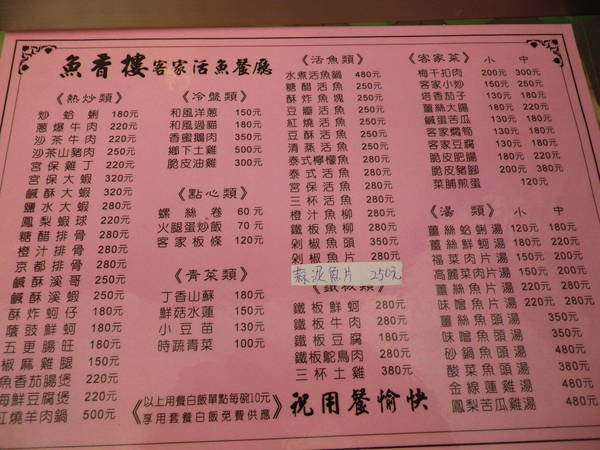 魚香樓客家活魚餐廳
《熱炒類》
炒蛤蜊 180元
蔥爆牛肉 220元
沙茶牛肉 220元
沙茶山豬肉 250元
宮保雞丁 220元
宮保大蝦 320元
鹹酥大蝦 320元
鹽水大蝦 280元
鳳梨蝦球 220元
糖醋排骨 280元
橙汁排骨 280元
京都排骨 280元
鹹酥溪哥 250元
鹹酥溪蝦 250元
酥炸蚵仔 180元
蔭豉鮮蚵 180元
五更腸旺 180元
椒麻雞腿 150元
魚香茄腸煲 220元
海鮮豆腐煲 220元
紅燒羊肉鍋 500元
《冷盤類》
和風洋蔥 150元
和風過貓 180元
香蜜鵝肉 350元
鄉下土雞 500元
脆皮油雞 300元
《點心類》
螺絲卷 60元
火腿蛋炒飯 70元
客家板條 120元
《青菜類》
丁香山蘇 180元
鮮菇水蓮 150元
小豆苗 130元
時蔬青菜 100元
《以上用餐白飯單點每碗10元
享用套餐白飯免費供應》
《活魚類》
水煮活魚鍋 480元
糖醋活魚 250元
酥炸魚塊 250元
豆瓣活魚 250元
紅燒活魚 250元
豆酥活魚 250元
清蒸活魚 250元
泰式檸檬魚 280元
泰式活魚 280元
宮保活魚 280元
三杯活魚 280元
橙汁魚柳 280元
鐵板魚柳 280元
剁椒魚頭 350元
剁椒魚片 280元
蒜泥魚片 250元
《鐵板類》
鐵板鮮蚵 280元
鐵板牛肉 280元
鐵板豆腐 180元
鐵板鴕鳥肉 280元
三杯土雞 380元
祝用餐愉快
《客家菜》 小 中
梅干扣肉 200元 300元
客家小炒 150元 250元
塔香茄子 130元 180元
薑絲大腸 180元 220元
鹹蛋苦瓜 130元 180元
客家燜筍 130元 180元
客家豆腐 130元 180元
脆皮肥腸 180元 220元
脆皮豬腳 220元 350元
菜脯煎蛋 120元
《湯類》 小 中
薑絲蛤蜊湯 120元 180元
薑絲鮮蚵湯 120元 180元
福菜肉片湯 150元 200元
高麗菜肉片湯 150元 200元
味噌魚片湯 150元 200元
薑絲魚片湯 150元 200元
薑絲魚頭湯 350元
味噌魚頭湯 350元
砂鍋魚頭湯 350元
酸菜魚頭湯 350元
金線蓮雞湯 450元
鳳梨苦瓜雞湯 450元